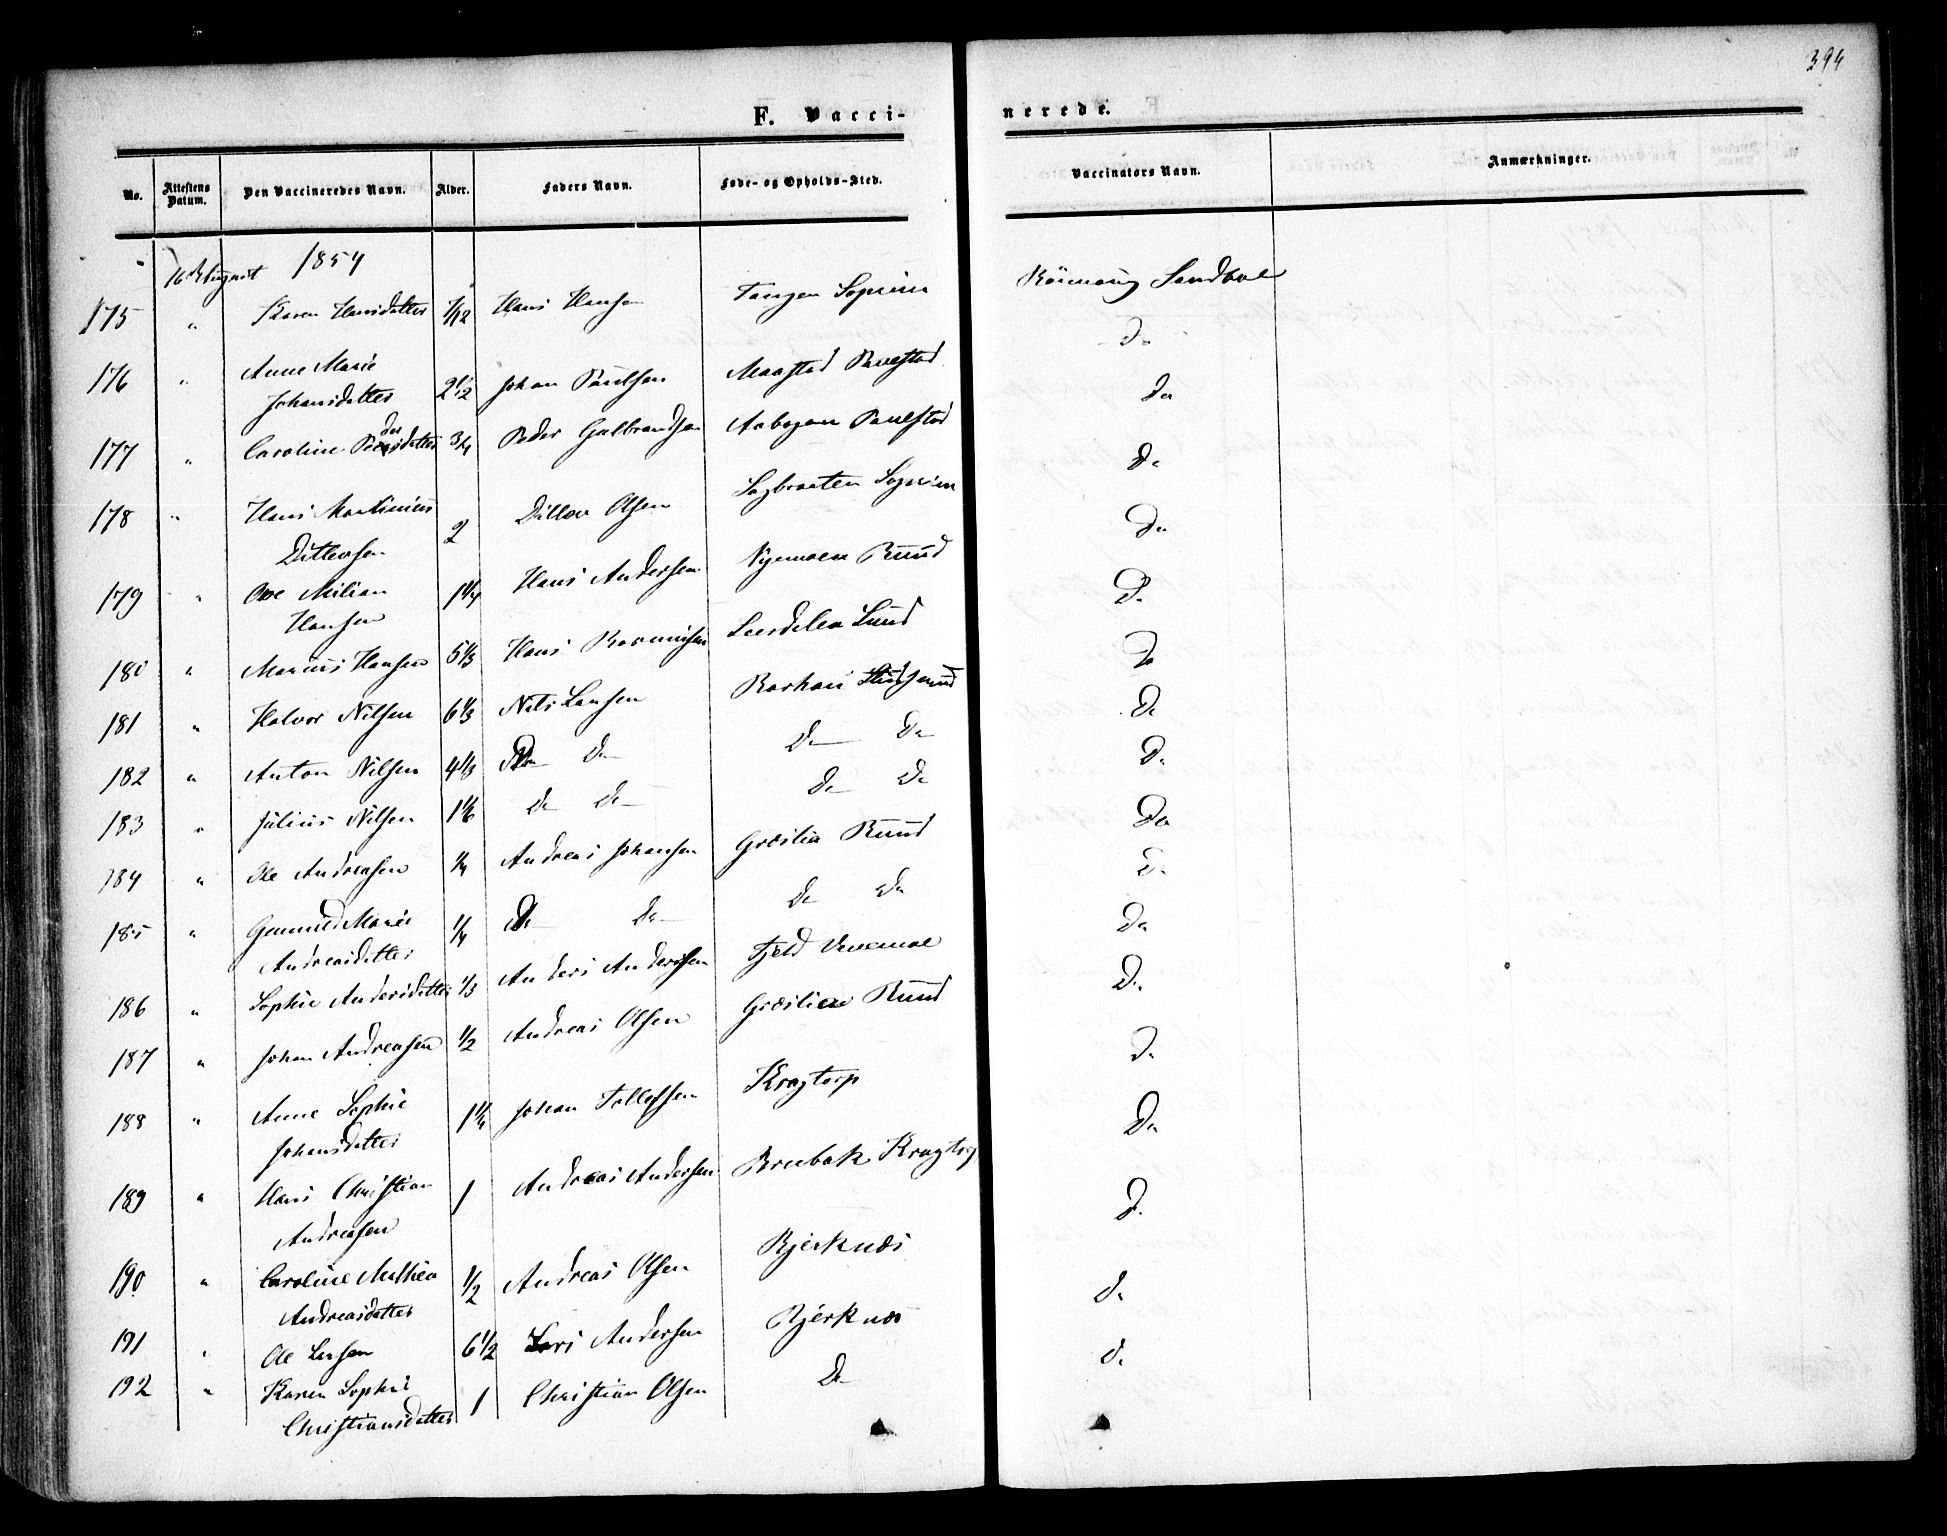 394
F. Vacci-
nerede.
No. Attestens Datum. Den Vaccineredes Navn. Alder. Faders Navn. Føde- og Opholds-Sted. Vaccinators Navn. Anmærkninger.
16 August 1854
175 " Karen Hansdatter 7/12 Hans Hansen Tangen Sandboe
176 " Anne Marie
Johansdatter 2 1/2 Johan Paulsen Maastad Do
177 " Caroline Pedersdatter 3/4 Peder Gulbrandsen Aabogen Do
178 " Hans Martinius
Ditlevsen 2 Ditlev Olsen Sagbraaten Do
179 " Ove Milian
Hansen 1 1/4 Hans Andersen Nyemoen Ruud Do
180 " Marius Hansen 5 1/3 Hans Rasmusen Lund Do
181 " Halvor Nilsen 6 1/3 Nils Larsen Do
182 " Anton Nilsen 4 1/3 Do Do Do Do Do
183 " Julius Nilsen 1 1/6 Do Do Do Do Do
184 " Ole Andreasen 1/4 Andreas Johansen Græslia Ruud Do
185 " Marie
Andreasdatter 1/4 Do Do Do Do Do
186 " Sophie Andersdatter 1/3 Anders Andersen Fjeld Do
187 " Johan Andreasen 1/2 Andreas Olsen Græslien Ruud Do
188 " Anne Sophie
Johansdatter 1 1/4 Johan Tollefsen Kragtorp Do
189 " Hans Christian
Andreasen 1 Andreas Andersen Brubak Kragtorp Do
190 " Caroline Mathea
Andreasdatter 1/2 Andreas Olsen Bjerknæs Do
191 " Ole Larsen 6 1/2 Lars Andersen Bjerknæs Do
192 " Karen Sophie
Christiansdatter 1 Christian Olsen Do Do